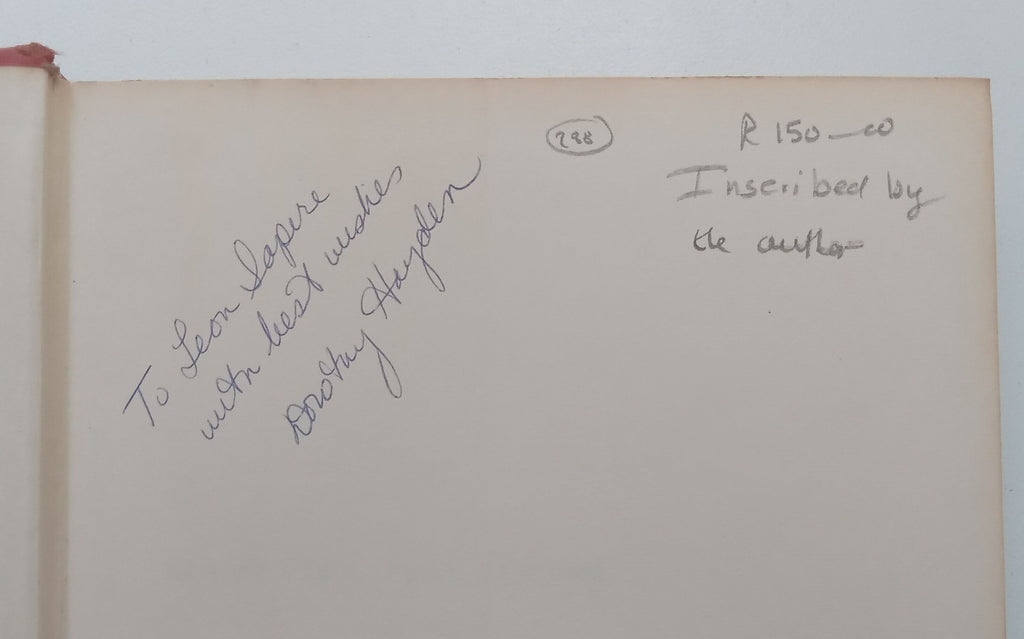 298
R 150—00
Inscribed by
the author
To Leon Sapire
with best wishes
Dorothy Hayden